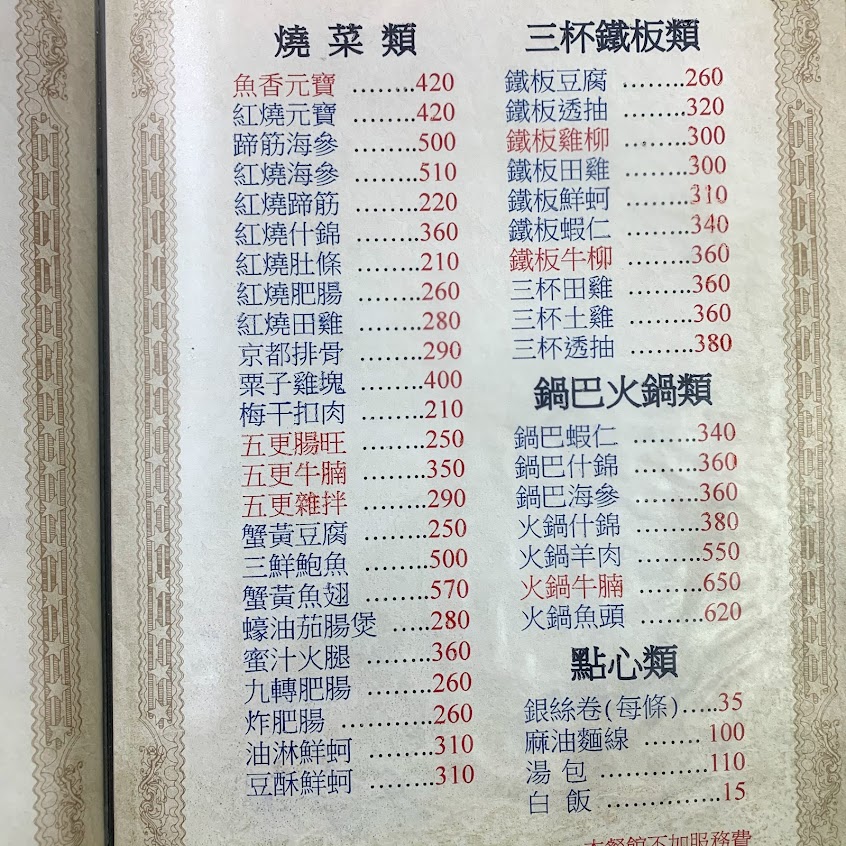 燒菜類
魚香元寶 ........420
紅燒元寶 ........420
蹄筋海參 ........500
紅燒海參 ........510
紅燒蹄筋 ........220
紅燒什錦 ........360
紅燒肚條 ........210
紅燒肥腸 ........260
紅燒田雞 ........280
京都排骨 ........290
粟子雞塊 ........400
梅干扣肉 ........210
五更腸旺 ........250
五更牛腩 ........350
五更雜拌 ........290
蟹黃豆腐 ........250
三鮮鮑魚 ........500
蟹黃魚翅 ........570
蠔油茄腸煲 .....280
蜜汁火腿 ........360
九轉肥腸 ........260
炸肥腸 ............260
油淋鮮蚵 ........310
豆酥鮮蚵 ........310
三杯鐵板類
鐵板豆腐 ........260
鐵板透抽 ........320
鐵板雞柳 ........300
鐵板田雞 ........300
鐵板鮮蚵 ........310
鐵板蝦仁 ........340
鐵板牛柳 ........360
三杯田雞 ........360
三杯土雞 ........360
三杯透抽 ........380
鍋巴火鍋類
鍋巴蝦仁 ........340
鍋巴什錦 ........360
鍋巴海參 ........360
火鍋什錦 ........380
火鍋羊肉 ........550
火鍋牛腩 ........650
火鍋魚頭 ........620
點心類
銀絲卷(每條).....35
麻油麵線 ....... 100
湯包 ..............110
白飯 ..............15
本餐館不加服務費